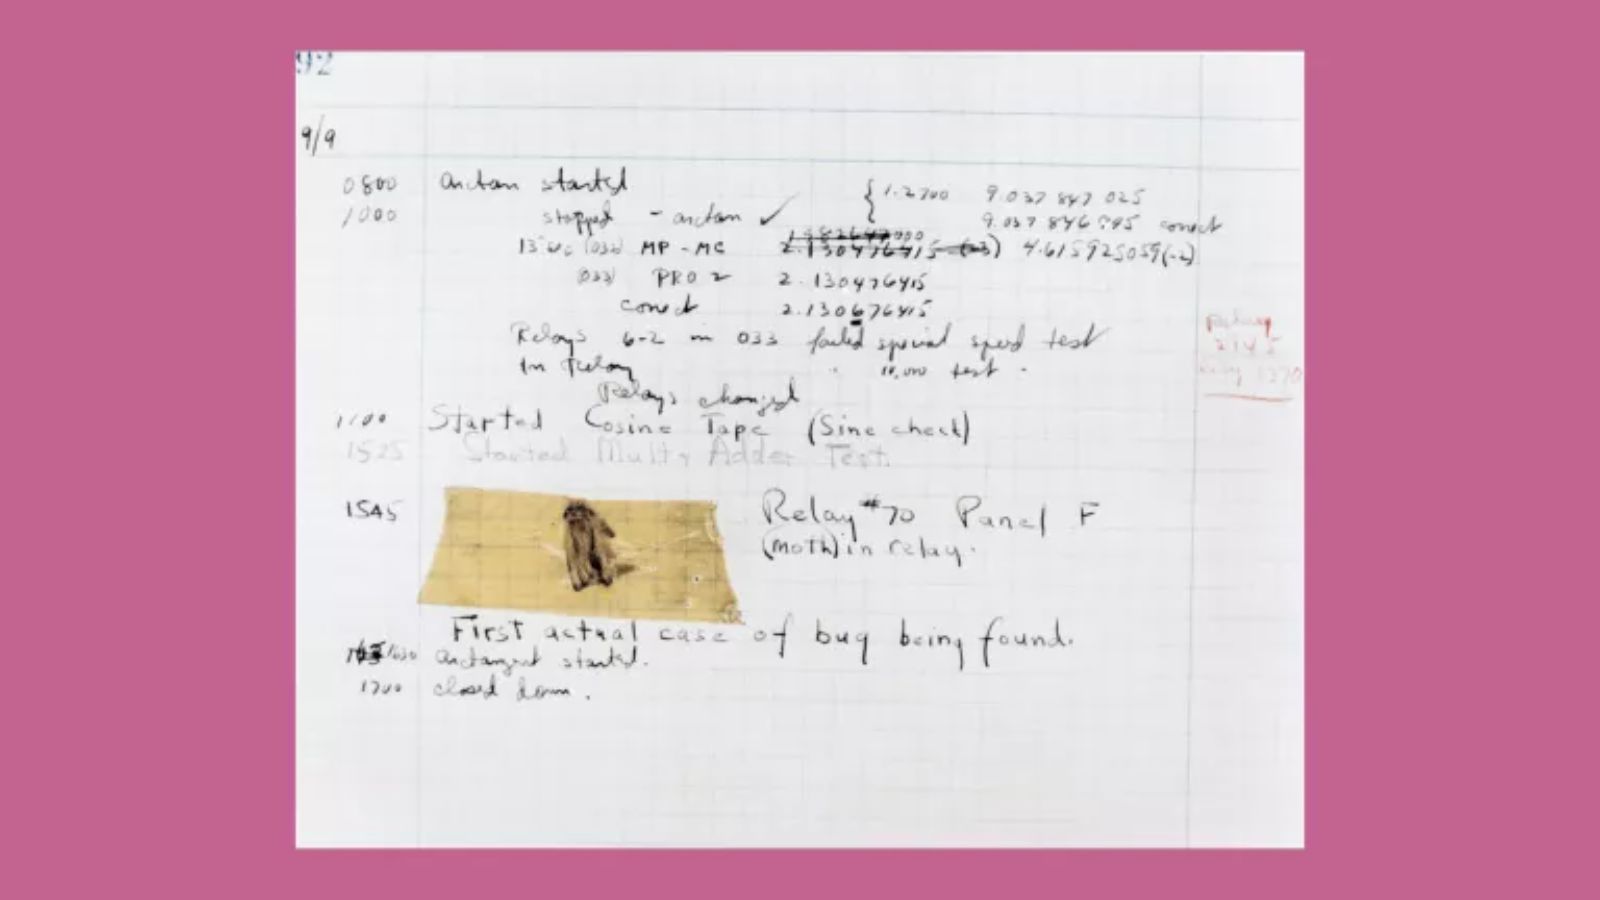 92
9/9
0800 Arctan started { 1.2700 9.037 847 025
1000 stopped - arctan ✓ 9.037 846 995 correct
(032) MP - MC 2.130476415 (-3) 4.615925059(-2)
(033) PRO 2 2.130476415
correct 2.130676415
Relays 6-2 in 033 failed special speed test
In Relay 10,000 test .
Relays changed
1100 Started Cosine Tape (Sine check)
1525 Started Mult + Adder Test.
1545 Relay #70 Panel F
(moth) in relay.
First actual case of bug being found.
1630 Arctangent started.
1700 closed down.
Relay
2145
Relay 3370